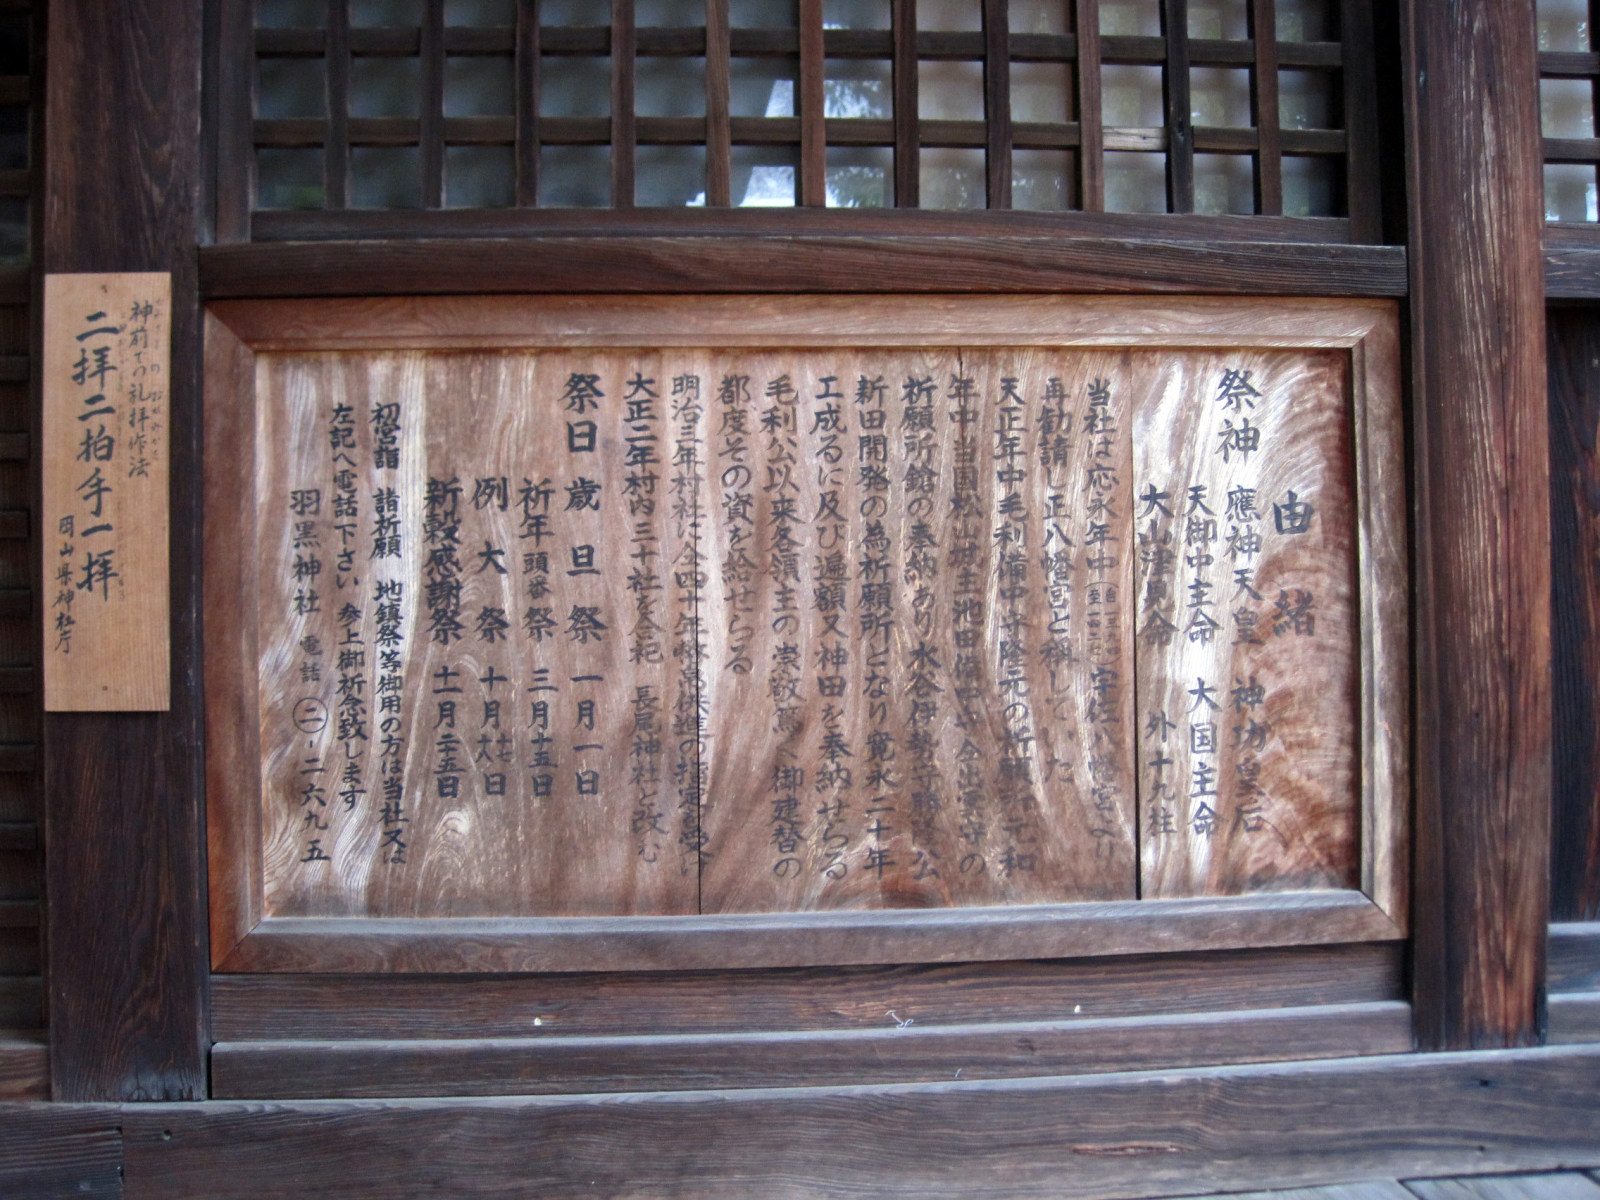 由緒
祭神 應神天皇 神功皇后
天御中主命 大国主命
大山津見命 外十九柱
当社は応永年中(自一三九四至一四二七)宇佐八幡宮より
再勧請し正八幡宮と称していた
天正年中毛利備中守隆元の祈願所元和
年中当国松山城主池田備中守出雲守の
祈願所鎗の奉納あり水谷伊勢守勝隆公
新田開発の為祈願所となり寛永二十年
工成るに及び遍額又神田を奉納せらる
毛利公以来各領主の崇敬篤く御建替の
都度その資を給せらる
明治三年村社に仝四十年幣帛供進の指定を受け
大正二年村内三十社を合祀 長尾神社と改む
祭日 歳旦祭 一月一日
祈年頭番祭 三月十五日
例大祭 十月十七十八日
新穀感謝祭 十一月二十五日
初宮詣 諸祈願 地鎮祭等御用の方は当社又は
左記へ電話下さい 参上御祈念致します
羽黒神社 電話 二-二六九五
神前での礼拝作法
二拝二拍手一拝
岡山県神社庁